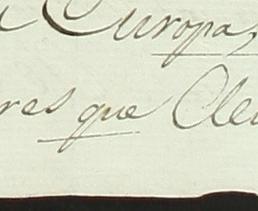 Europa,
res que Cle